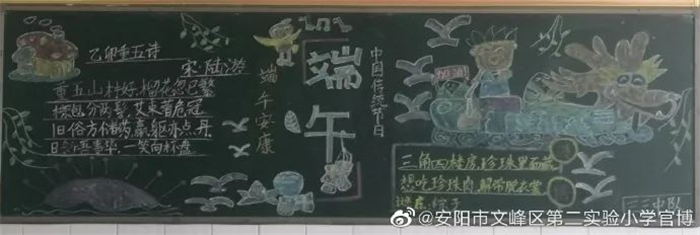 乙卯重五诗
宋·陆游
重五山村好,榴花忽已繁
粽包分两髻,艾束著危冠
旧俗方储药,羸躯亦点丹
日斜吾事毕,一笑向杯盘
端午安康
端午
中国传统节日
加油
三角四楞房,珍珠里面藏
想吃珍珠肉,解带脱衣裳
谜底:粽子
三三中队
@安阳市文峰区第二实验小学官博